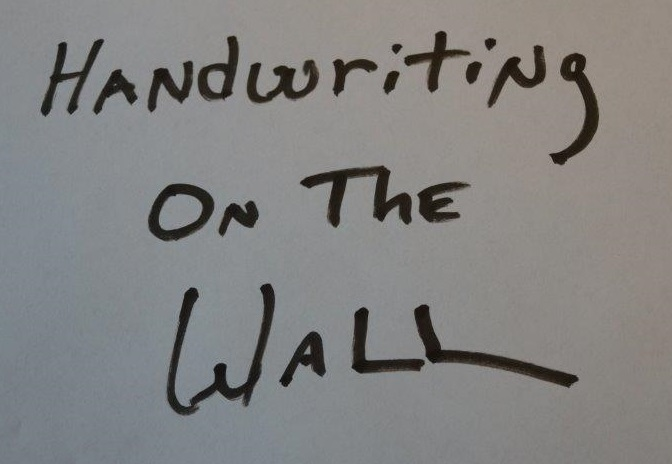 HANdwritiNg
ON ThE
WALL